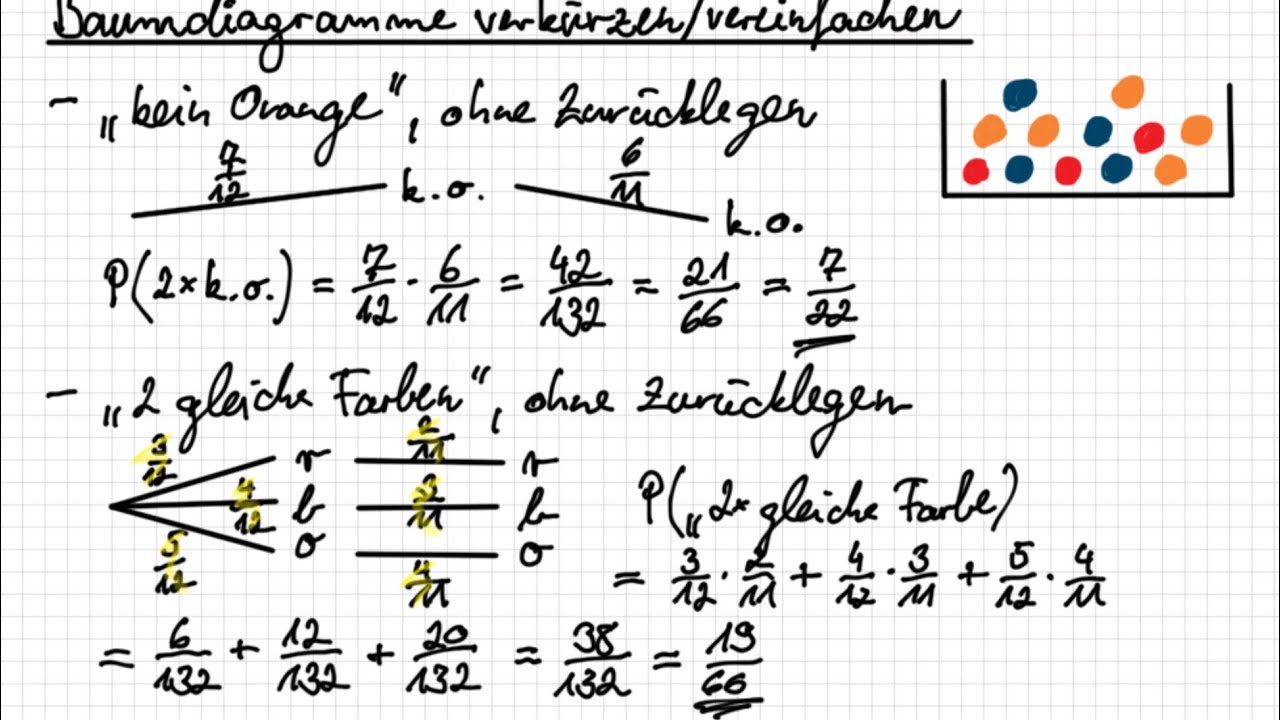 Baumdiagramme verkürzen/vereinfachen
- „kein Orange“, ohne Zurücklegen
7/12 k.o. 6/11 k.o.
P(2×k.o.) = 7/12 · 6/11 = 42/132 = 21/66 = 7/22
- „2 gleiche Farben“, ohne Zurücklegen
3/12 r 2/11 r
4/12 b 3/11 b
5/12 o 4/11 o
P(„2× gleiche Farbe)
= 3/12 · 2/11 + 4/12 · 3/11 + 5/12 · 4/11
= 6/132 + 12/132 + 20/132 = 38/132 = 19/66